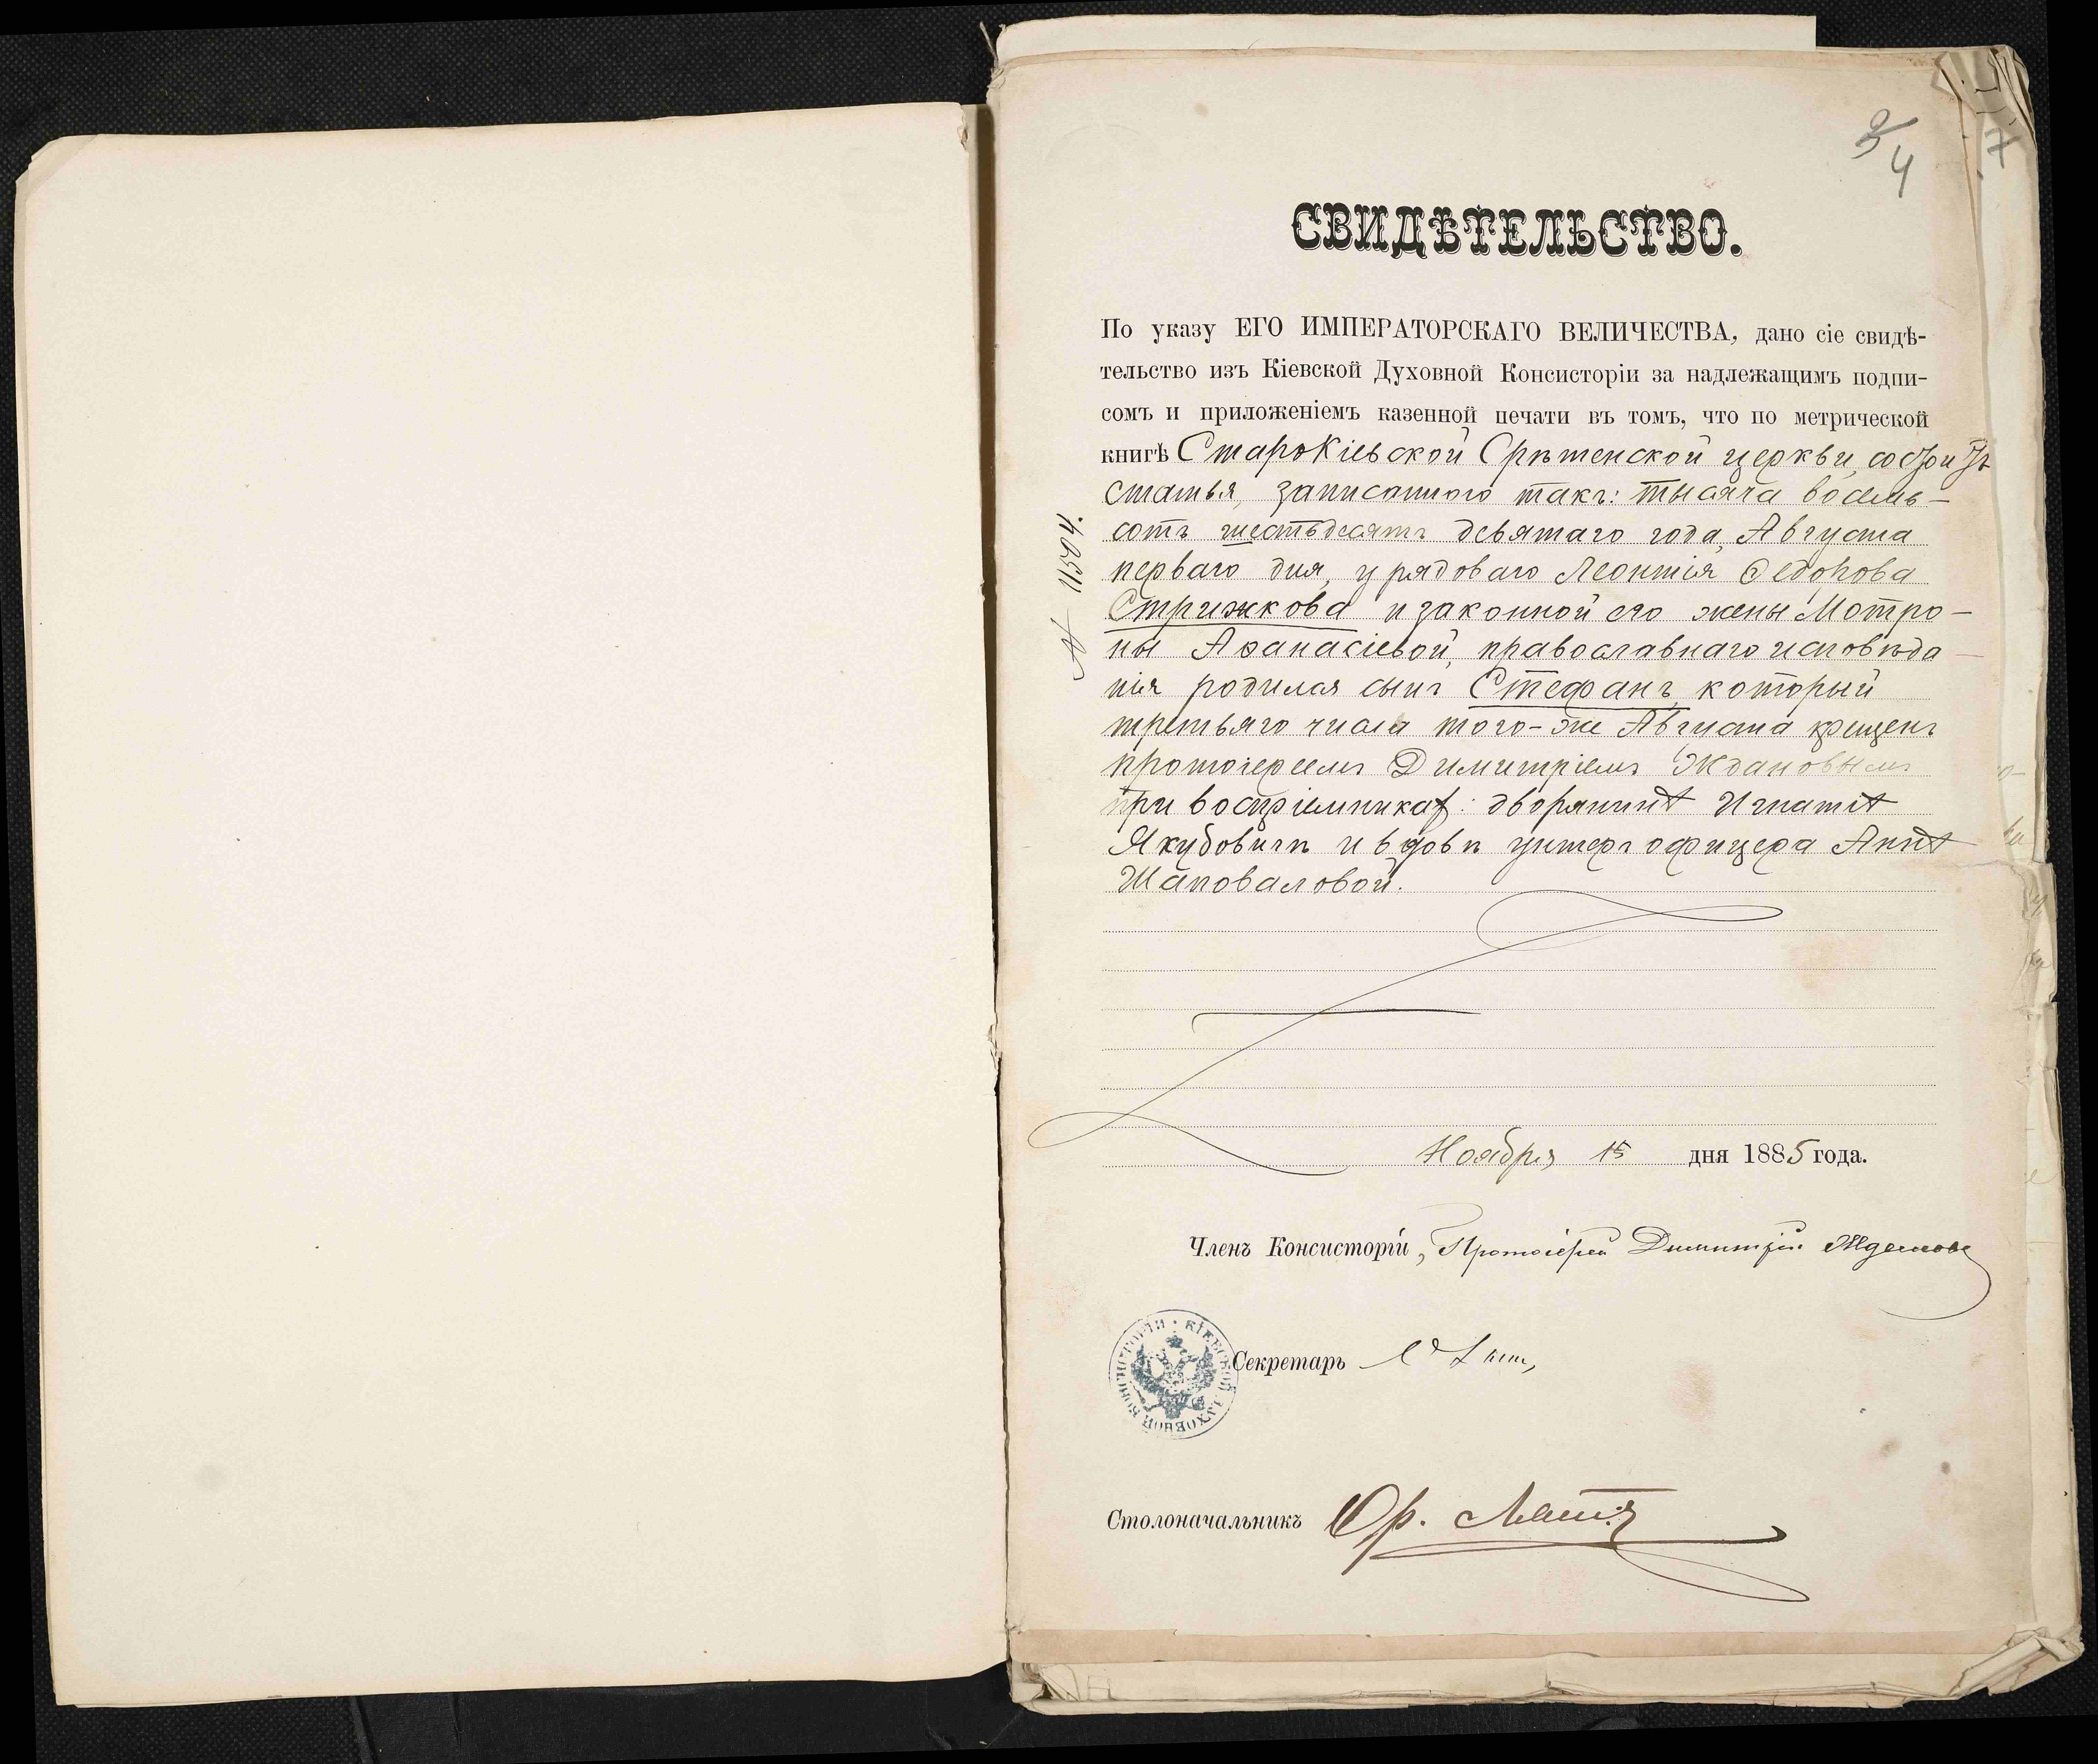 4
7
СВИДѢТЕЛЬСТВО.
По указу ЕГО ИМПЕРАТОРСКАГО ВЕЛИЧЕСТВА, дано сіе свидѣ-
тельство изъ Кіевской Духовной Консисторіи за надлежащимъ подпи-
сомъ и приложеніемъ казенной печати въ томъ, что по метрической
книгѣ СтароКіевской Срѣтенской церкви,
статья, записанною такъ: тысяча восемь-
сотъ шестьдесятъ девятаго года, Августа
перваго дня, у рядоваго Леонтія Ѳедорова
Стрижкова и законной его жены Мотро-
ны Аѳанасіевой, православнаго исповѣда-
нія родился сынъ Стефанъ, который
третьяго числа того-же Августа крещенъ
протоіереемъ Димитріемъ Ждановымъ
при воспріемникахъ: дворянинѣ Игнатіѣ
Якубовичѣ и вдовѣ унтеръ офицера Аннѣ
Шаповаловой.
№ 11594.
Ноября 15 дня 1885 года.
Членъ Консисторіи, Протоіерей Димитрій Ждановъ
Секретарь
КІЕВСКОЙ ДУХОВНОЙ КОНСИСТОРІИ
Столоначальникъ